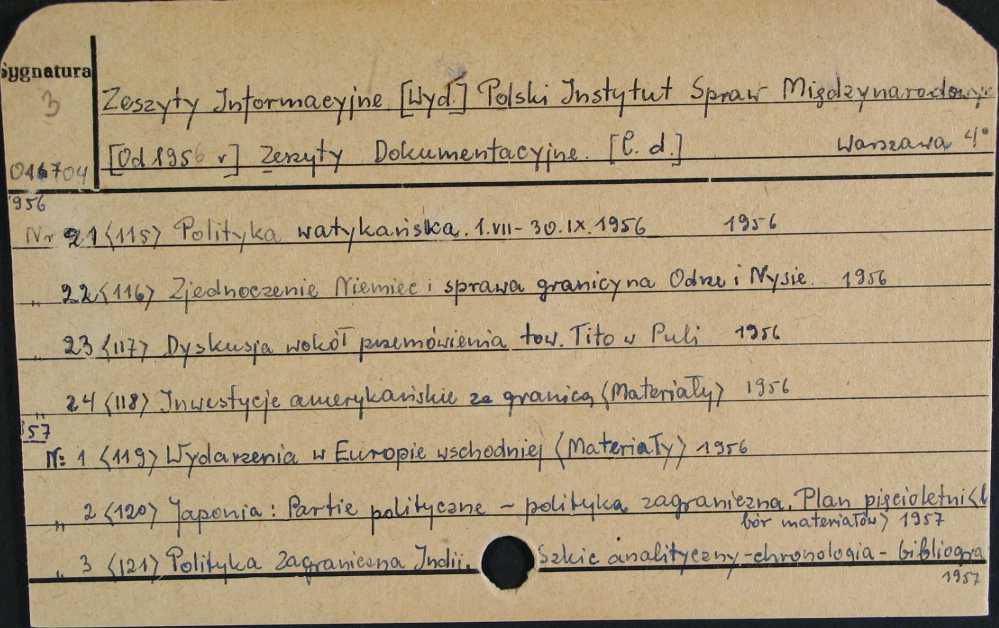 Sygnatura
3
Zeszyty Informacyjne [Wyd.] Polski Instytut Spraw Międzynarodowyc
[Od 1956 r] Zeszyty Dokumentacyjne. [C. d.] Warszawa 4°
046704
956
Nr 21 <115> Polityka watykańska. 1.VII - 30.IX.1956 1956
„ 22 <116> Zjednoczenie Niemiec i sprawa granicy na Odrze i Nysie. 1956
„ 23 <117> Dyskusja wokół przemówienia tow. Tito w Puli 1956
„ 24 <118> Inwestycje amerykańskie za granicą <Materiały> 1956
57
Nr 1 <119> Wydarzenia w Europie wschodniej <Materiały> 1956
„ 2 <120> Japonia: Partie polityczne - polityka zagraniczna. Plan pięcioletni <
bór materiałów> 1957
„ 3 <121> Polityka Zagraniczna Indii. Szkic analityczny - chronologia - bibliogra
1957